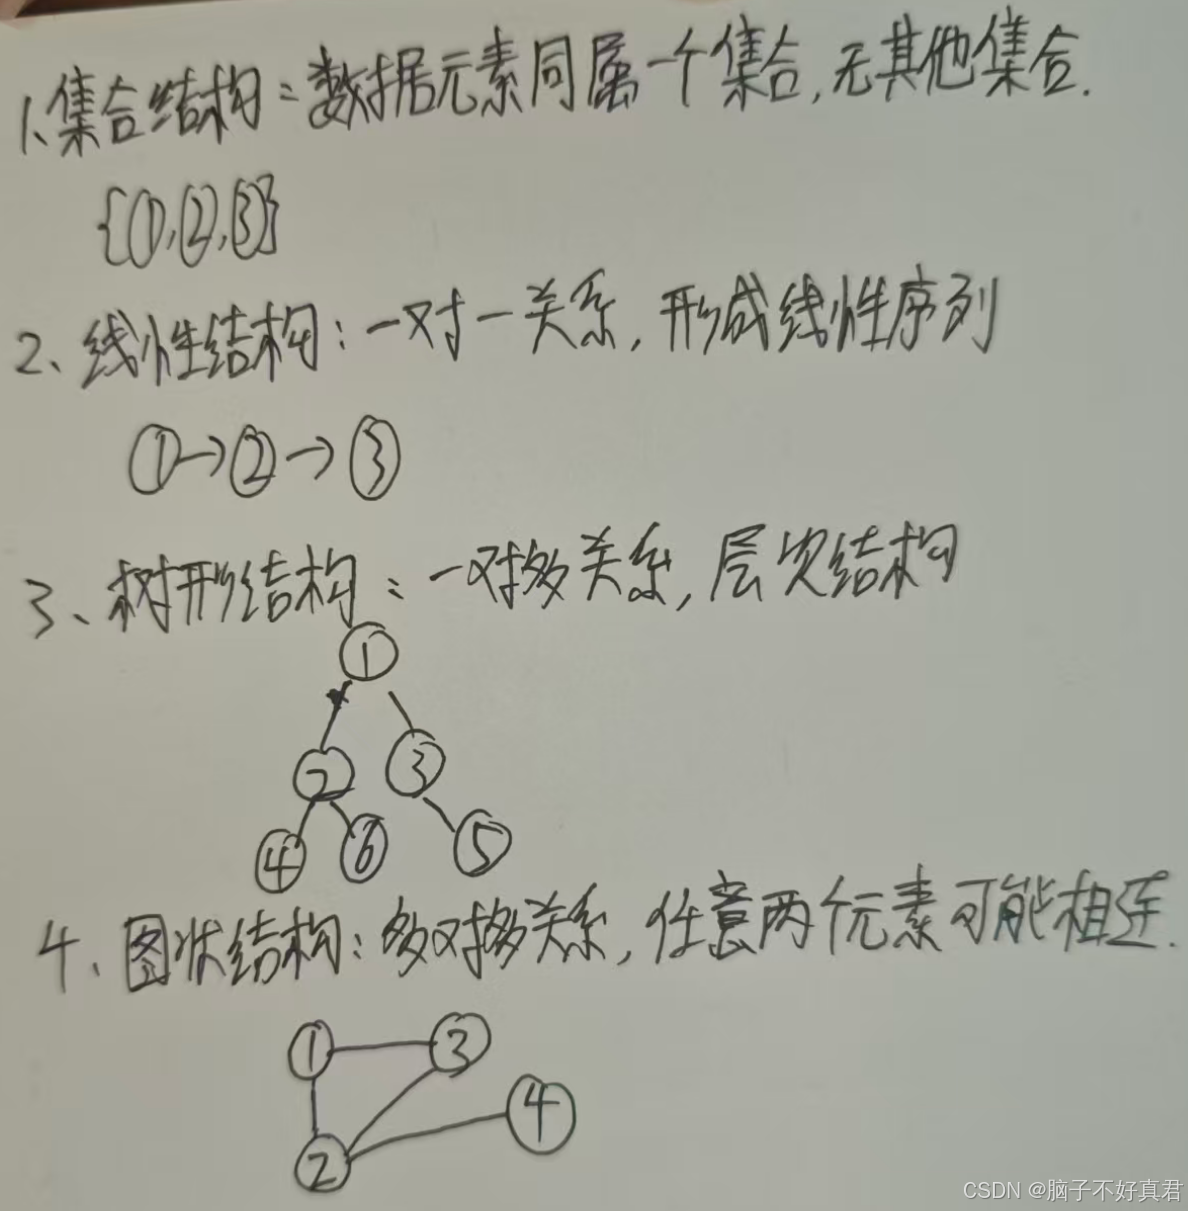 1、集合结构：数据元素同属一个集合,无其他集合.
{①,②,③}
2、线性结构：一对一关系,形成线性序列
①→②→③
3、树形结构：一对多关系,层次结构
①
② ③
④ ⑥ ⑤
4、图状结构：多对多关系,任意两个元素可能相连.
① ③
④
②
CSDN @脑子不好真君